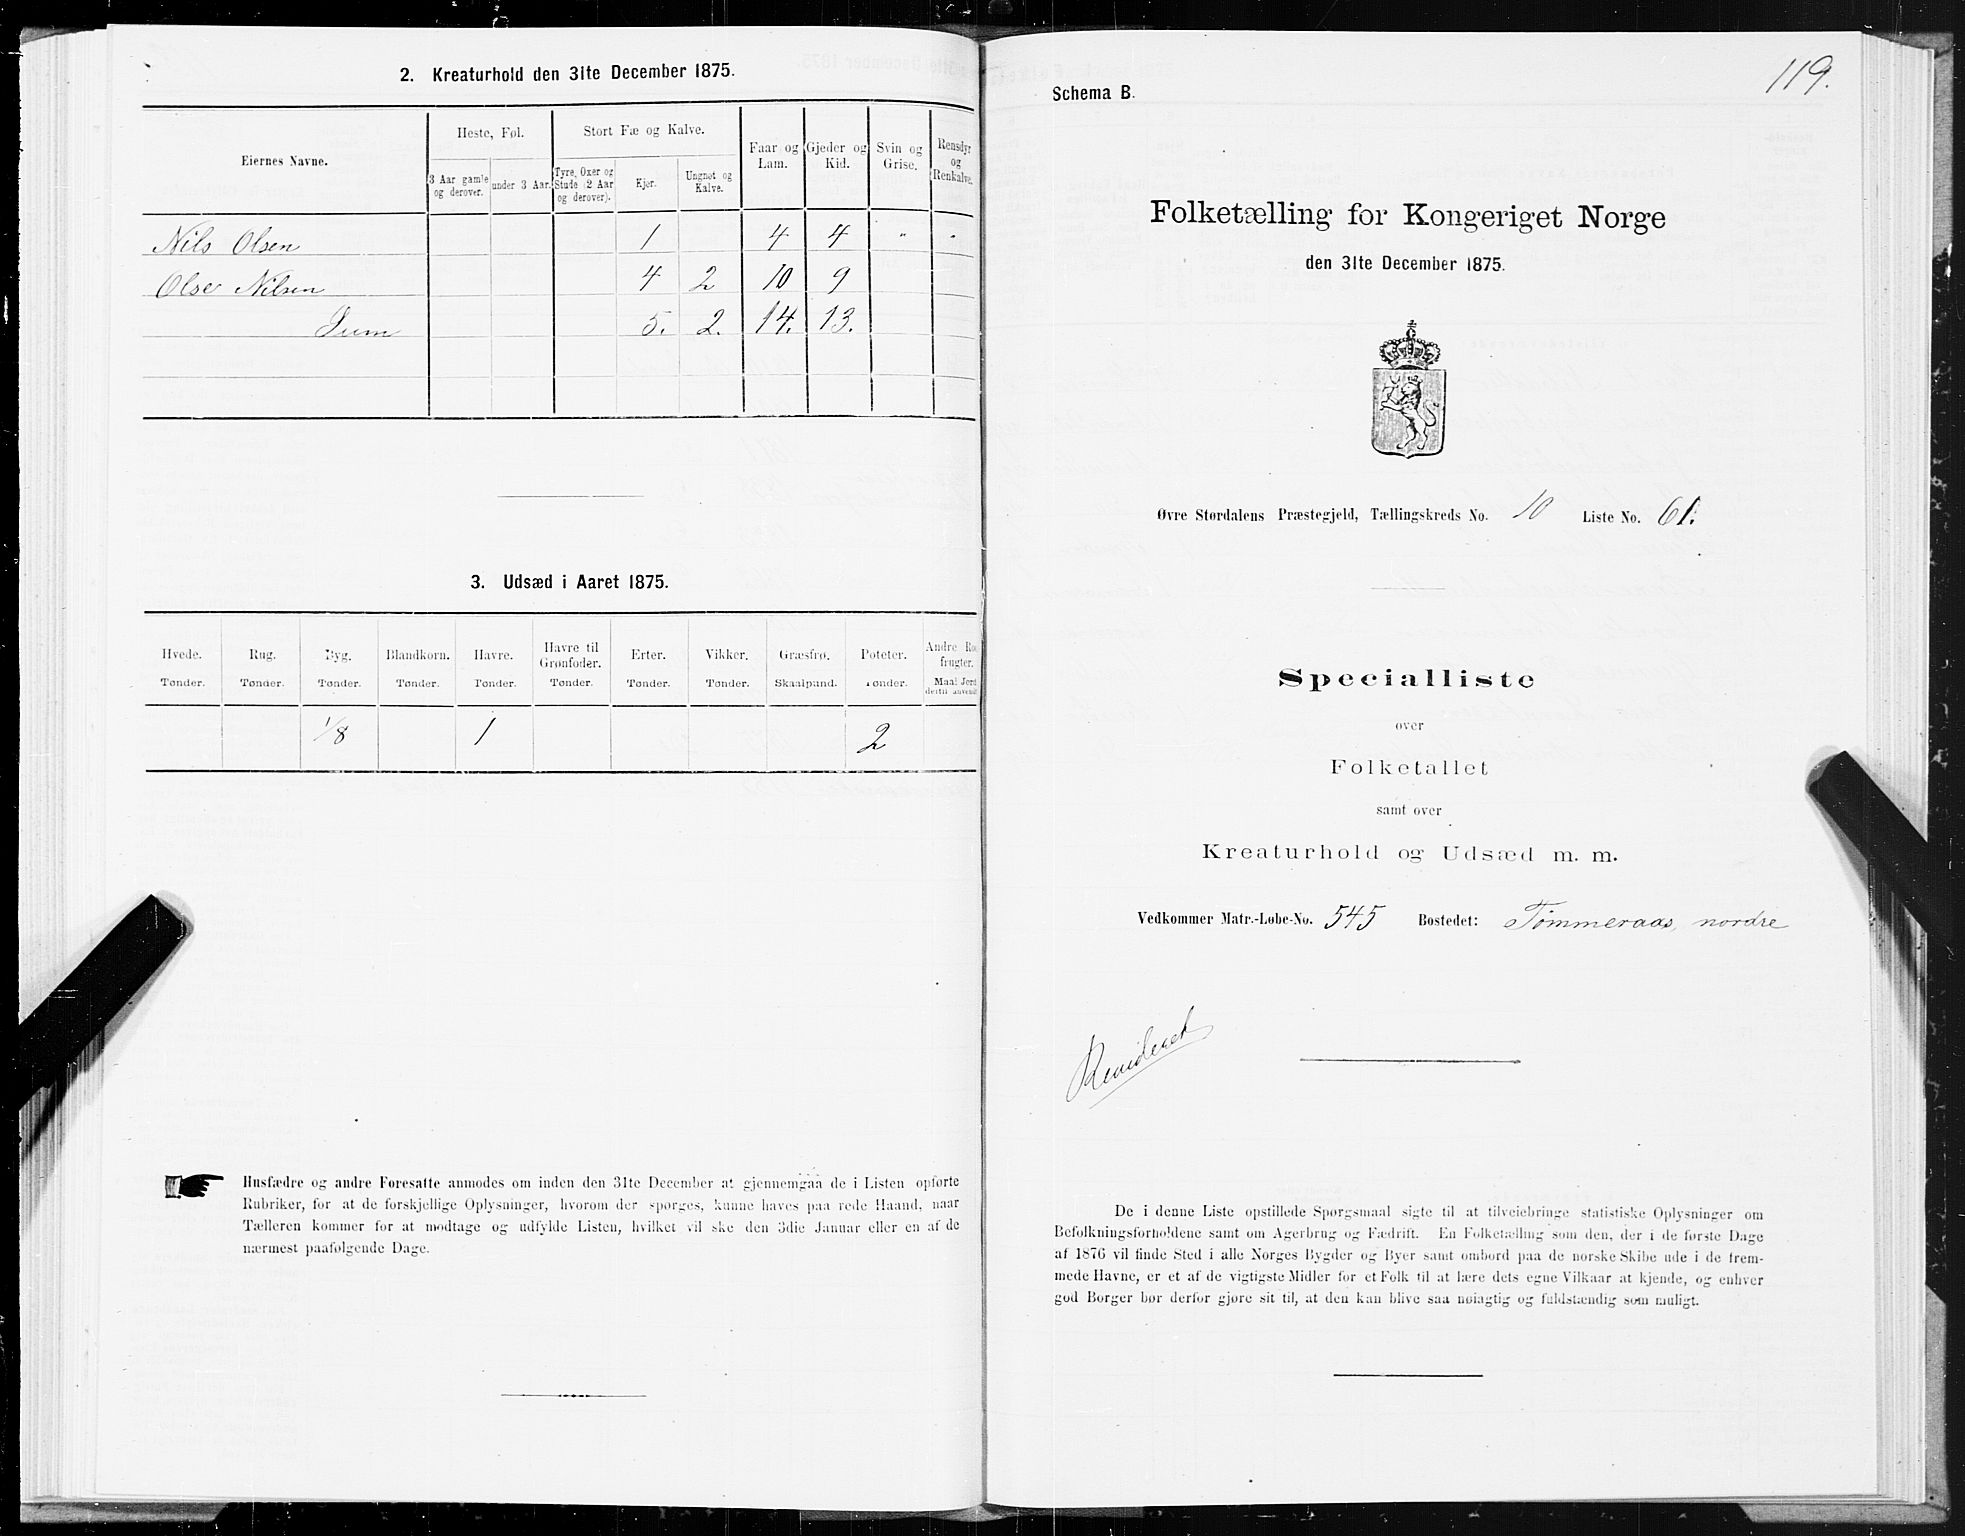 2. Kreaturhold den 31te December 1875.
Eiernes Navne. Heste, Føl. Stort Fæ og Kalve. Faar og Lam. Gjeder og Kid. Svin og Grise. Rensdyr og Renkalve.
3 Aar gamle og derover. under 3 Aar. Tyre, Oxer og Stude (2 Aar og derover). Kjør. Ungnøt og Kalve.
Nils Olsen 1 4 4 " "
Olse Nilsen 4 2 10 9
Sum 5. 2. 14. 13.
3. Udsæd i Aaret 1875.
Hvede. Rug. Byg. Blandkorn. Havre. Havre til Grønfoder. Erter. Vikker. Græsfrø. Poteter. Andre Ro frugter.
Tønder. Tønder. Tønder. Tønder. Tønder. Tønder. Tønder. Tønder. Skaalpund. Tønder. Maal Jord dertil anvendt
1/8 1 2
Husfædre og andre Foresatte anmodes om inden den 31te December at gjennemgaa de i Listen opførte
Rubriker, for at de forskjellige Oplysninger, hvorom der spørges, kunne haves paa rede Haand, naar
Tælleren kommer for at modtage og udfylde Listen, hvilket vil ske den 3die Januar eller en af de
nærmest paafølgende Dage.
119.
Schema B.
Folketælling for Kongeriget Norge
den 31te December 1875.
Øvre Størdalens Præstegjeld, Tællingskreds No. 10 Liste No. 61.
Specialliste
over
Folketallet
samt over
Kreaturhold og Udsæd m. m.
Vedkommer Matr.-Løbe-No. 545 Bostedet: Tømmeraas, nordre
Revideret
De i denne Liste opstillede Spørgsmaal sigte til at tilveiebringe statistiske Oplysninger om
Befolkningsforholdene samt om Agerbrug og Fædrift. En Folketælling som den, der i de første Dage
af 1876 vil finde Sted i alle Norges Bygder og Byer samt ombord paa de norske Skibe ude i de frem-
mede Havne, er et af de vigtigste Midler for et Folk til at lære dets egne Vilkaar at kjende, og enhver
god Borger bør derfor gjøre sit til, at den kan blive saa nøiagtig og fuldstændig som muligt.